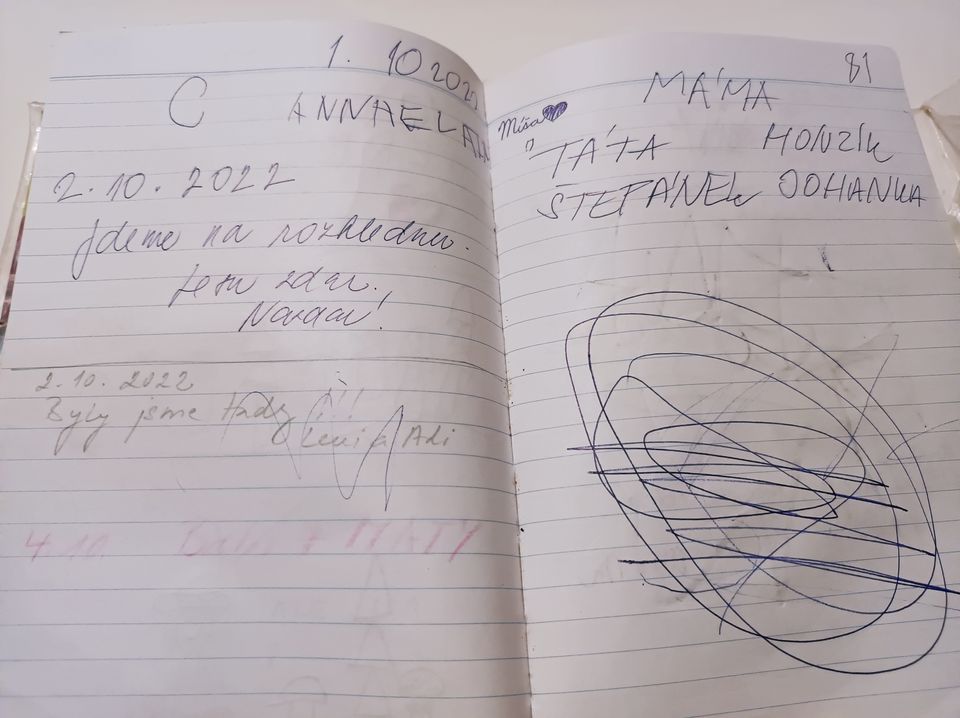 1. 10 2022
C ANNA
2.10.2022
Jdeme na rozhlednu.
zdar.
2.10.2022
Byly jsme tady !!!
Leni a Adi
4.10 + MATY
81
MÁMA
Míša
TÁTA HONZÍK
ŠTEPÁNEK JOHANKA